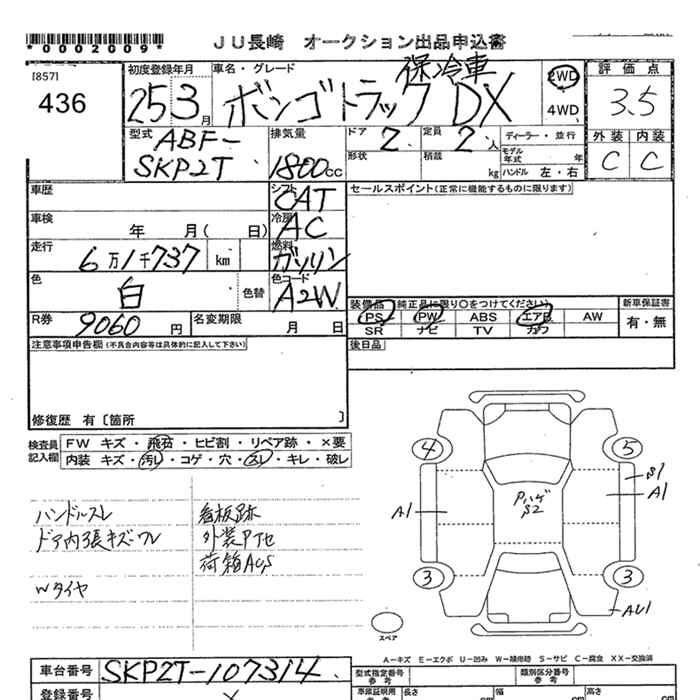 *0002009*
JU長崎 オークション出品申込書
[857]
436
初度登録年月
25 3月
車名・グレード
保冷車
ボンゴトラック DX
2WD
4WD
評価点
3.5
外装 内装
C C
型式
ABF-
SKP2T
排気量
1800cc
ドア 2
定員 2人
形状
積載 kg
ディーラー・並行
モデル年式 年
ハンドル 左・右
車歴
シフト CAT
セールスポイント(正常に機能するものに限ります)
車検 年 月( 日)
冷房 AC
走行 6万1千737 km
燃料 ガソリン
色 白 色替
色コード A2W
R券 9060円
名変期限 月 日
装備品 (純正品に限り○をつけてください)
PS PW ABS エアB AW
SR ナビ TV カワ
新車保証書
有・無
注意事項申告欄(不具合内容等は具体的に記入して下さい)
後日品
修復歴 有 [箇所 ]
検査員記入欄
FW キズ・飛石・ヒビ割・リペア跡・×要
内装 キズ・汚レ・コゲ・穴・スレ・キレ・破レ
ハンドルスレ
ドア内張キズ・ワレ
Wタイヤ
看板跡
外装Pタセ
荷箱AUS
4 5
S1
A1
A1
Pハゲ
S2
3 3
AU1
スペア
A-キズ E-エクボ U-凹み W-補修跡 S-サビ C-腐食 XX-交換済
車台番号 SKP2T-107314
型式指定番号 参考
類別区分番号 参考
登録番号
車庫証明用 長さ cm 幅 cm 高さ cm